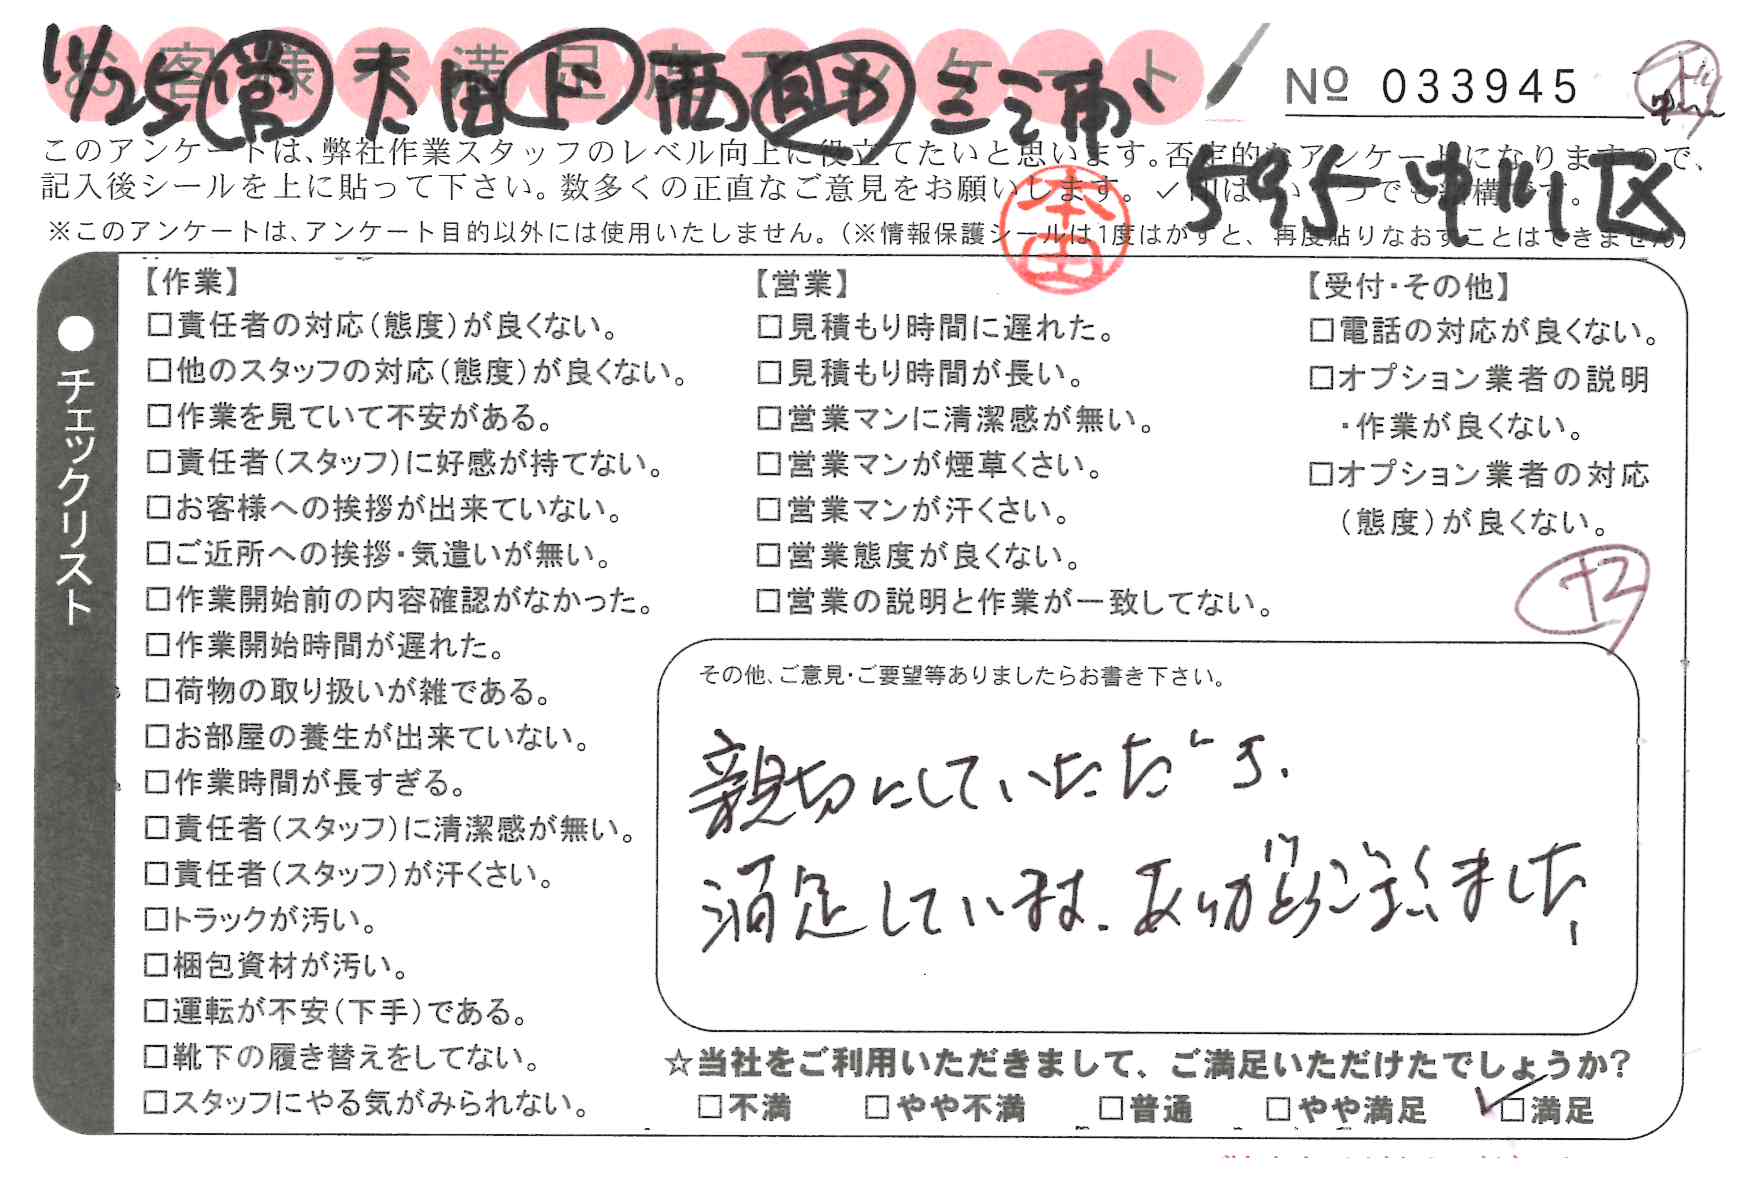 お客様不満足度アンケート
11/25 営 太田 ド 西 助 三浦
№ 033945
このアンケートは、弊社作業スタッフのレベル向上に役立てたいと思います。否定的なアンケートになりますので、
記入後シールを上に貼って下さい。数多くの正直なご意見をお願いします。✓印はいくつでも結構です。
595 中川区
※このアンケートは、アンケート目的以外には使用いたしません。(※情報保護シールは1度はがすと、再度貼りなおすことはできません)
●チェックリスト
【作業】
□責任者の対応(態度)が良くない。
□他のスタッフの対応(態度)が良くない。
□作業を見ていて不安がある。
□責任者(スタッフ)に好感が持てない。
□お客様への挨拶が出来ていない。
□ご近所への挨拶・気遣いが無い。
□作業開始前の内容確認がなかった。
□作業開始時間が遅れた。
□荷物の取り扱いが雑である。
□お部屋の養生が出来ていない。
□作業時間が長すぎる。
□責任者(スタッフ)に清潔感が無い。
□責任者(スタッフ)が汗くさい。
□トラックが汚い。
□梱包資材が汚い。
□運転が不安(下手)である。
□靴下の履き替えをしてない。
□スタッフにやる気がみられない。
【営業】
□見積もり時間に遅れた。
□見積もり時間が長い。
□営業マンに清潔感が無い。
□営業マンが煙草くさい。
□営業マンが汗くさい。
□営業態度が良くない。
□営業の説明と作業が一致してない。
【受付・その他】
□電話の対応が良くない。
□オプション業者の説明
・作業が良くない。
□オプション業者の対応
(態度)が良くない。
その他、ご意見・ご要望等ありましたらお書き下さい。
親切にしていただき、
満足しています。ありがとうございました!
☆当社をご利用いただきまして、ご満足いただけたでしょうか?
□不満 □やや不満 □普通 □やや満足 ✓□満足